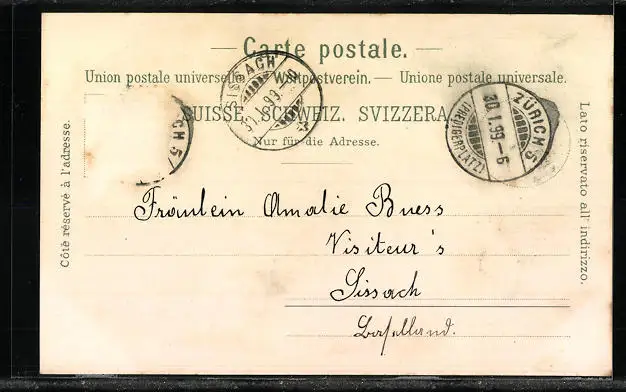 — Carte postale. —
Union postale universelle. — Weltpostverein. — Unione postale universale.
SUISSE. SCHWEIZ. SVIZZERA.
Nur für die Adresse.
Côté réservé à l'adresse.
Lato riservato all' indirizzo.
SISSACH
30.I.99.
ZÜRICH 5
30.I.99.-6
(PREDIGERPLATZ)
CH 5
Fräulein Amalie Buess
Visiteur's
Sissach
Baselland.